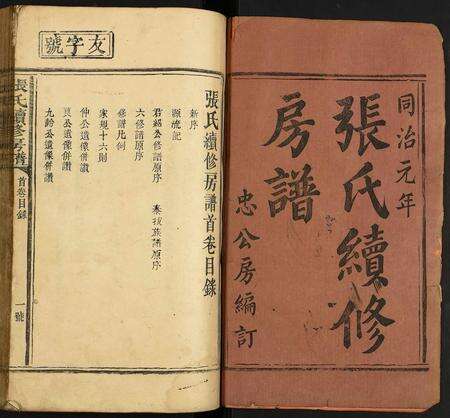 同治元年
張氏續修
房譜
忠公房編訂
友字號
張氏續修房譜首卷目錄
新序
源流記
君紹公修譜原序
秦拔族譜原序
六修譜原序
修譜凡例
家規十六則
仲公遺像併讚
良公遺像併讚
九齡公遺像併讚
張氏續修房譜
首卷目錄
一號